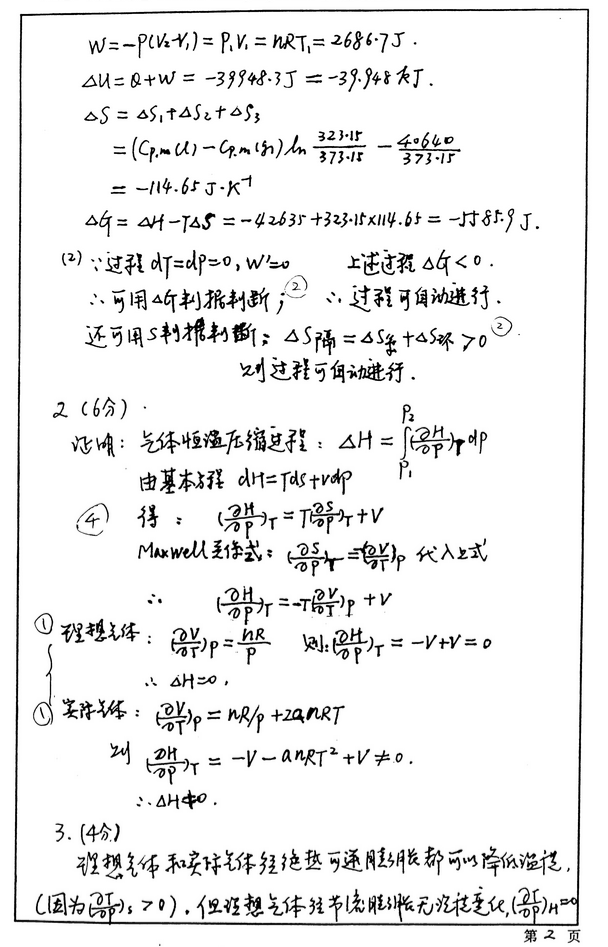 W=-P(V₂-V₁)=P₁V₁=nRT₁=2686.7J.
ΔU=Q+W = -39948.3J = -39.948kJ.
ΔS = ΔS₁+ΔS₂+ΔS₃
=(Cp,m(l)-Cp,m(g))ln 323.15/373.15 - 40640/373.15
= -114.65 J·K⁻¹
ΔG=ΔH-TΔS=-42635+323.15×114.65=-5585.9J.
(2) ∵过程dT=dp=0, W'=0 上述过程ΔG<0.
∴可用ΔG判据判断; ② ∴过程可自动进行.
还可用S判据判断: ΔS隔=ΔS系+ΔS环>0 ②
则过程可自动进行.
2 (6分).
证明: 气体恒温压缩过程: ΔH=∫_{P₁}^{P₂}(∂H/∂P)_T dp
由基本方程 dH=Tds+vdp
④ 得: (∂H/∂P)_T=T(∂S/∂P)_T+V
Maxwell关系式: (∂S/∂P)_T=-(∂V/∂T)_P 代入上式
∴ (∂H/∂P)_T=-T(∂V/∂T)_P+V
① 理想气体: (∂V/∂T)_P=nR/P 则:(∂H/∂P)_T=-V+V=0
∴ ΔH=0,
① 实际气体: (∂V/∂T)_P=nR/p+2anRT
则 (∂H/∂P)_T=-V-anRT²+V≠0.
∴ΔH≠0.
3.(4分)
理想气体和实际气体经绝热可逆膨胀都可以降低温度,
(因为(∂T/∂P)_S>0). 但理想气体经节流膨胀无温度变化,(∂T/∂P)_H=0
第 2 页